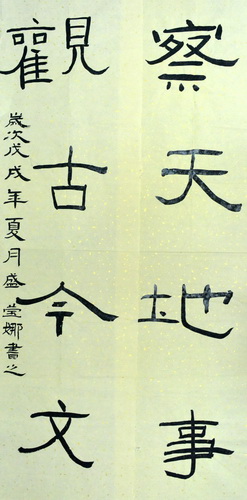 察天地事
觀古今文
歲次戊戌年夏月盛瑩娜書之